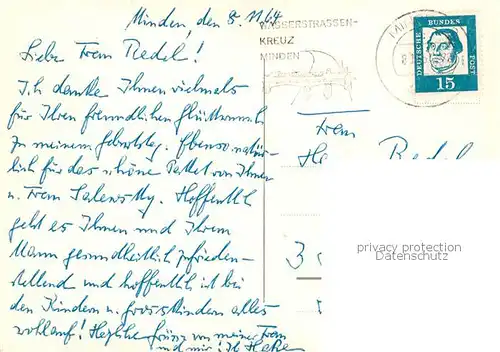 Minden, den 8. 11 64
WASSERSTRASSEN-
KREUZ
MINDEN
DEUTSCHE BUNDES POST
15
Liebe Frau Redel!
Ich danke Ihnen vielmals
für Ihren freundlichen Glückwunsch
zu meinem Geburtstag. Ebenso natür-
lich für das schöne Paket von Ihnen
u. Frau Salewsky. Hoffentlich
geht es Ihnen und Ihrem
Mann gesundheitlich zufrieden-
stellend und hoffentlich ist bei
den Kindern u. Grosskindern alles
wohlauf! Herzliche Grüsse von meiner Frau
und mir! Ih
Frau
Redel
3
privacy protection
Datenschutz